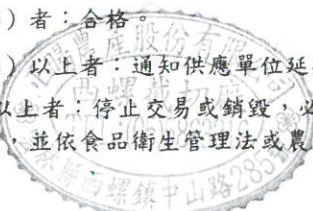 ）者：合格。
）以上者：通知供應單位延
以上者：停止交易或銷毀，必
，並依食品衛生管理法或農
農產股份有限
西螺
西螺鎮中山路285號